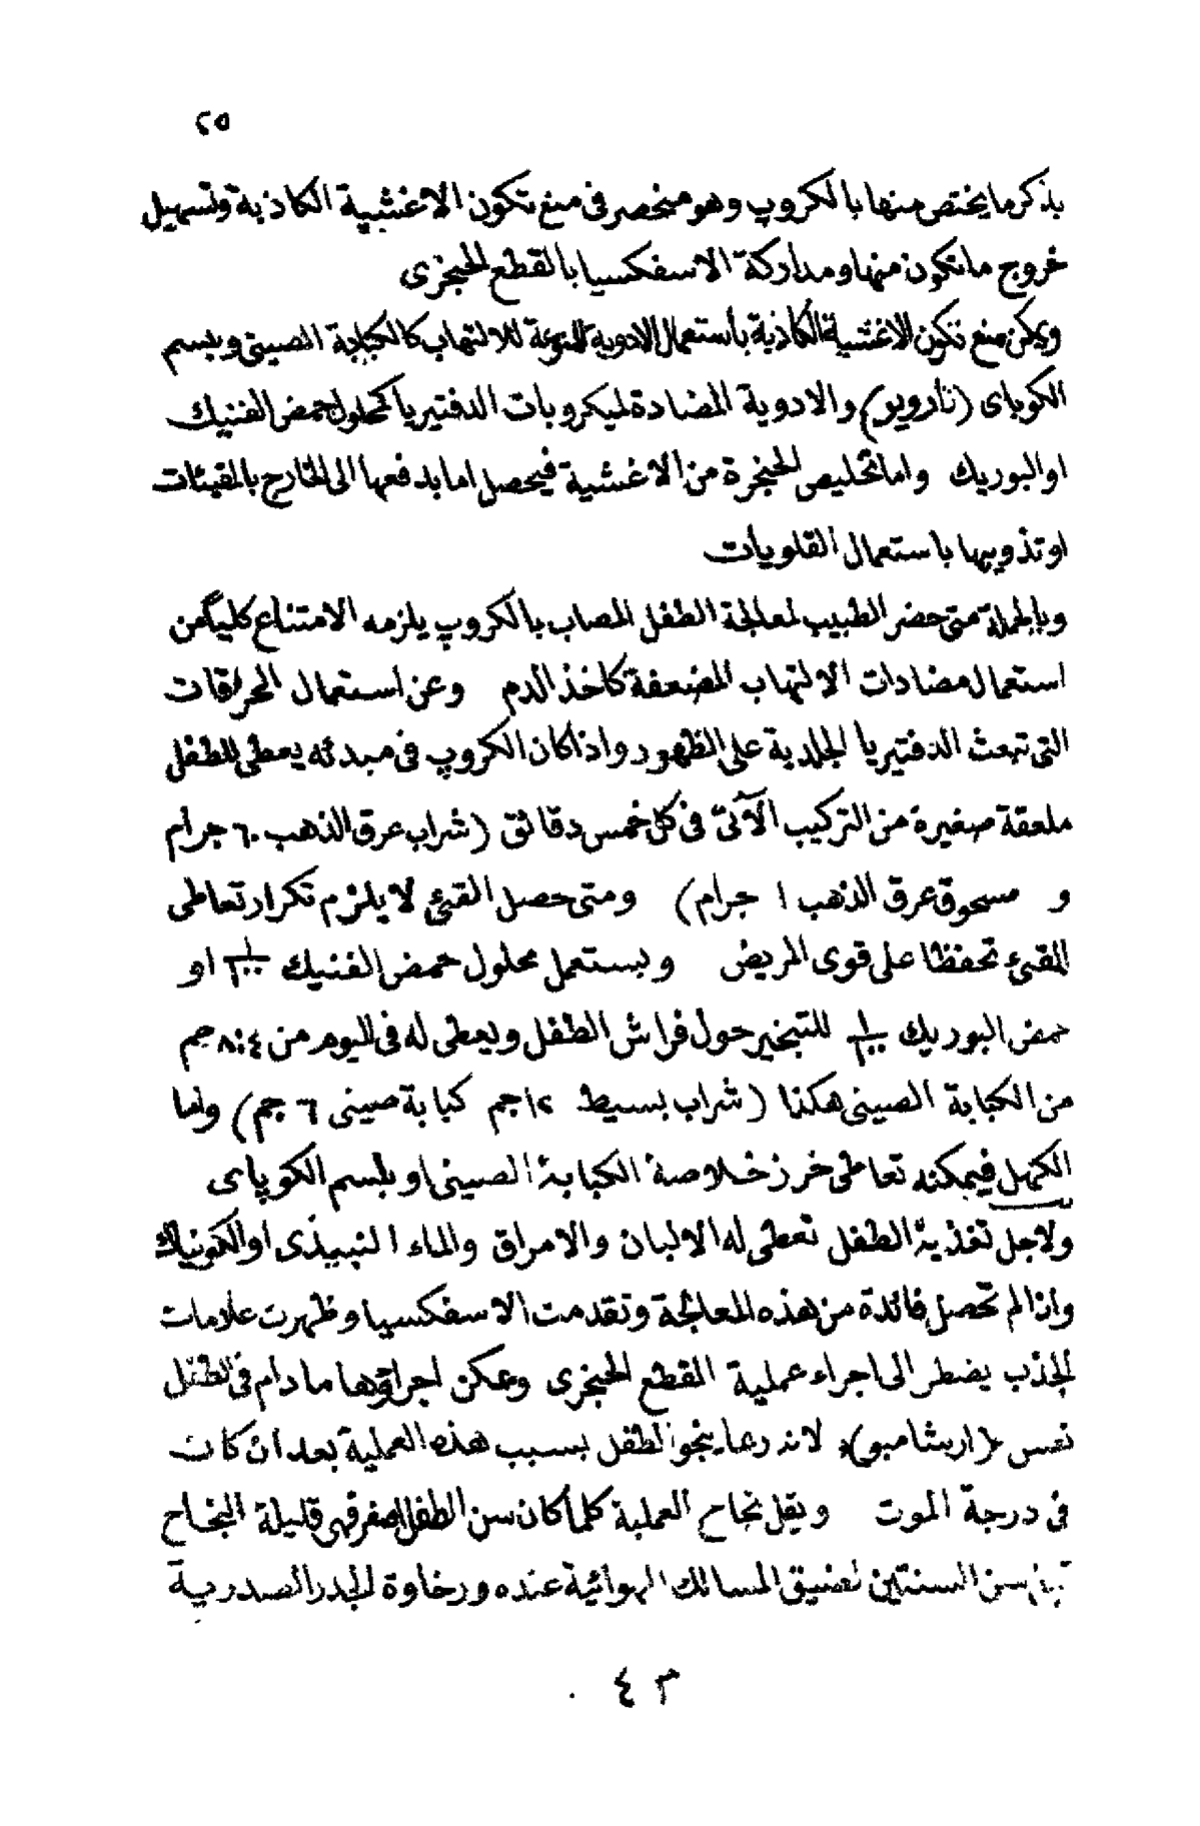 ٢٥
بذكر ما يختص منها بالكروب وهو منحصر فى منع تكون الاغشية الكاذبة وتسهيل
خروج ما تكون منها ومداركة الاسفكسيا بالقطع الحنجرى
ويمكن منع تكون الاغشية الكاذبة بأستعمال الادوية المنوعة للالتهاب كالكبابة الصينى وبلسم
الكوباى (تارويو) والادوية المضادة لميكروبات الدفتيريا كمحلول حمض الفنيك
او البوريك واما تخليص الحنجرة من الاغشية فيحصل اما بدفعها الى الخارج بالمقيئات
او تذويبها باستعمال القلويات
وبالجملة متى حضر الطبيب لمعالجة الطفل المصاب بالكروب يلزمه الامتناع كلياً عن
استعمال مضادات الالتهاب المضعفة كاخذ الدم وعن استعمال الحراقات
التى تبعث الدفتيريا الجلدية على الظهور واذا كان الكروب فى مبدئه يعطى للطفل
ملعقة صغيرة من التركيب الآتى فى كل خمس دقائق (شراب عرق الذهب ٦٠ جرام
و مسحوق عرق الذهب ١ جرام) ومتى حصل القئ لا يلزم تكرار تعاطى
المقئ تحفظا على قوى المريض ويستعمل محلول حمض الفنيك ١/١٠٠ او
حمض البوريك ١/١٠٠ للتبخير حول فراش الطفل ويعطى له فى اليوم من ٤:٨ جم
من الكبابة الصينى هكذا (شراب بسيط ١٢ جم كبابة صينى ٦ جم) واما
الكهل فيمكنه تعاطى خرز خلاصة الكبابة الصينى او بلسم الكوباى
ولاجل تغذية الطفل تعطى له الالبان والامراق والماء النبيذى او الكونياك
واذا لم تحصل فائدة من هذه المعالجة وتقدمت الاسفكسيا وظهرت علامات
الجذب يضطر الى اجراء عملية القطع الحنجرى ويمكن اجراؤها ما دام فى الطفل
نفس (ارشامبو) لانه ربما ينجو الطفل بسبب هذه العملية بعد ان كان
فى درجة الموت ويقل نجاح العملية كلما كان سن الطفل اصغر فهى قليلة النجاح
قبل سن السنتين لضيق المسالك الهوائية عنده ورخاوة الجدر الصدرية
م ٤